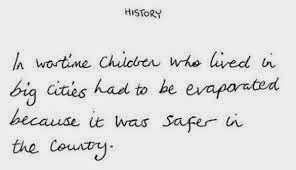 HISTORY
In wartime children who lived in
big cities had to be evaporated
because it was safer in
the country.